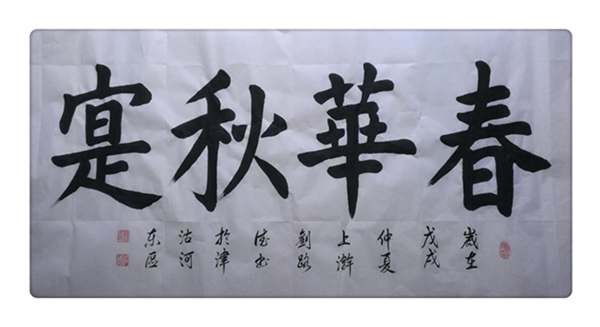 春華秋寔
歲在
戊戌
仲夏
上澣
劉路
书
於津
沽河
东區